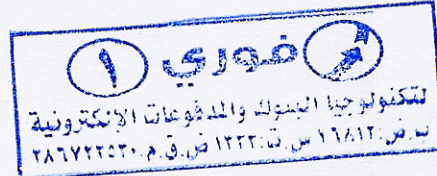 فوري ١
لتكنولوجيا البنوك والمدفوعات الإلكترونية
ب.ض: ١٦٨١٢ س.ت: ١٣٣٣ ض.ق.م. ٢٨٦٧٢٢٥٣٠